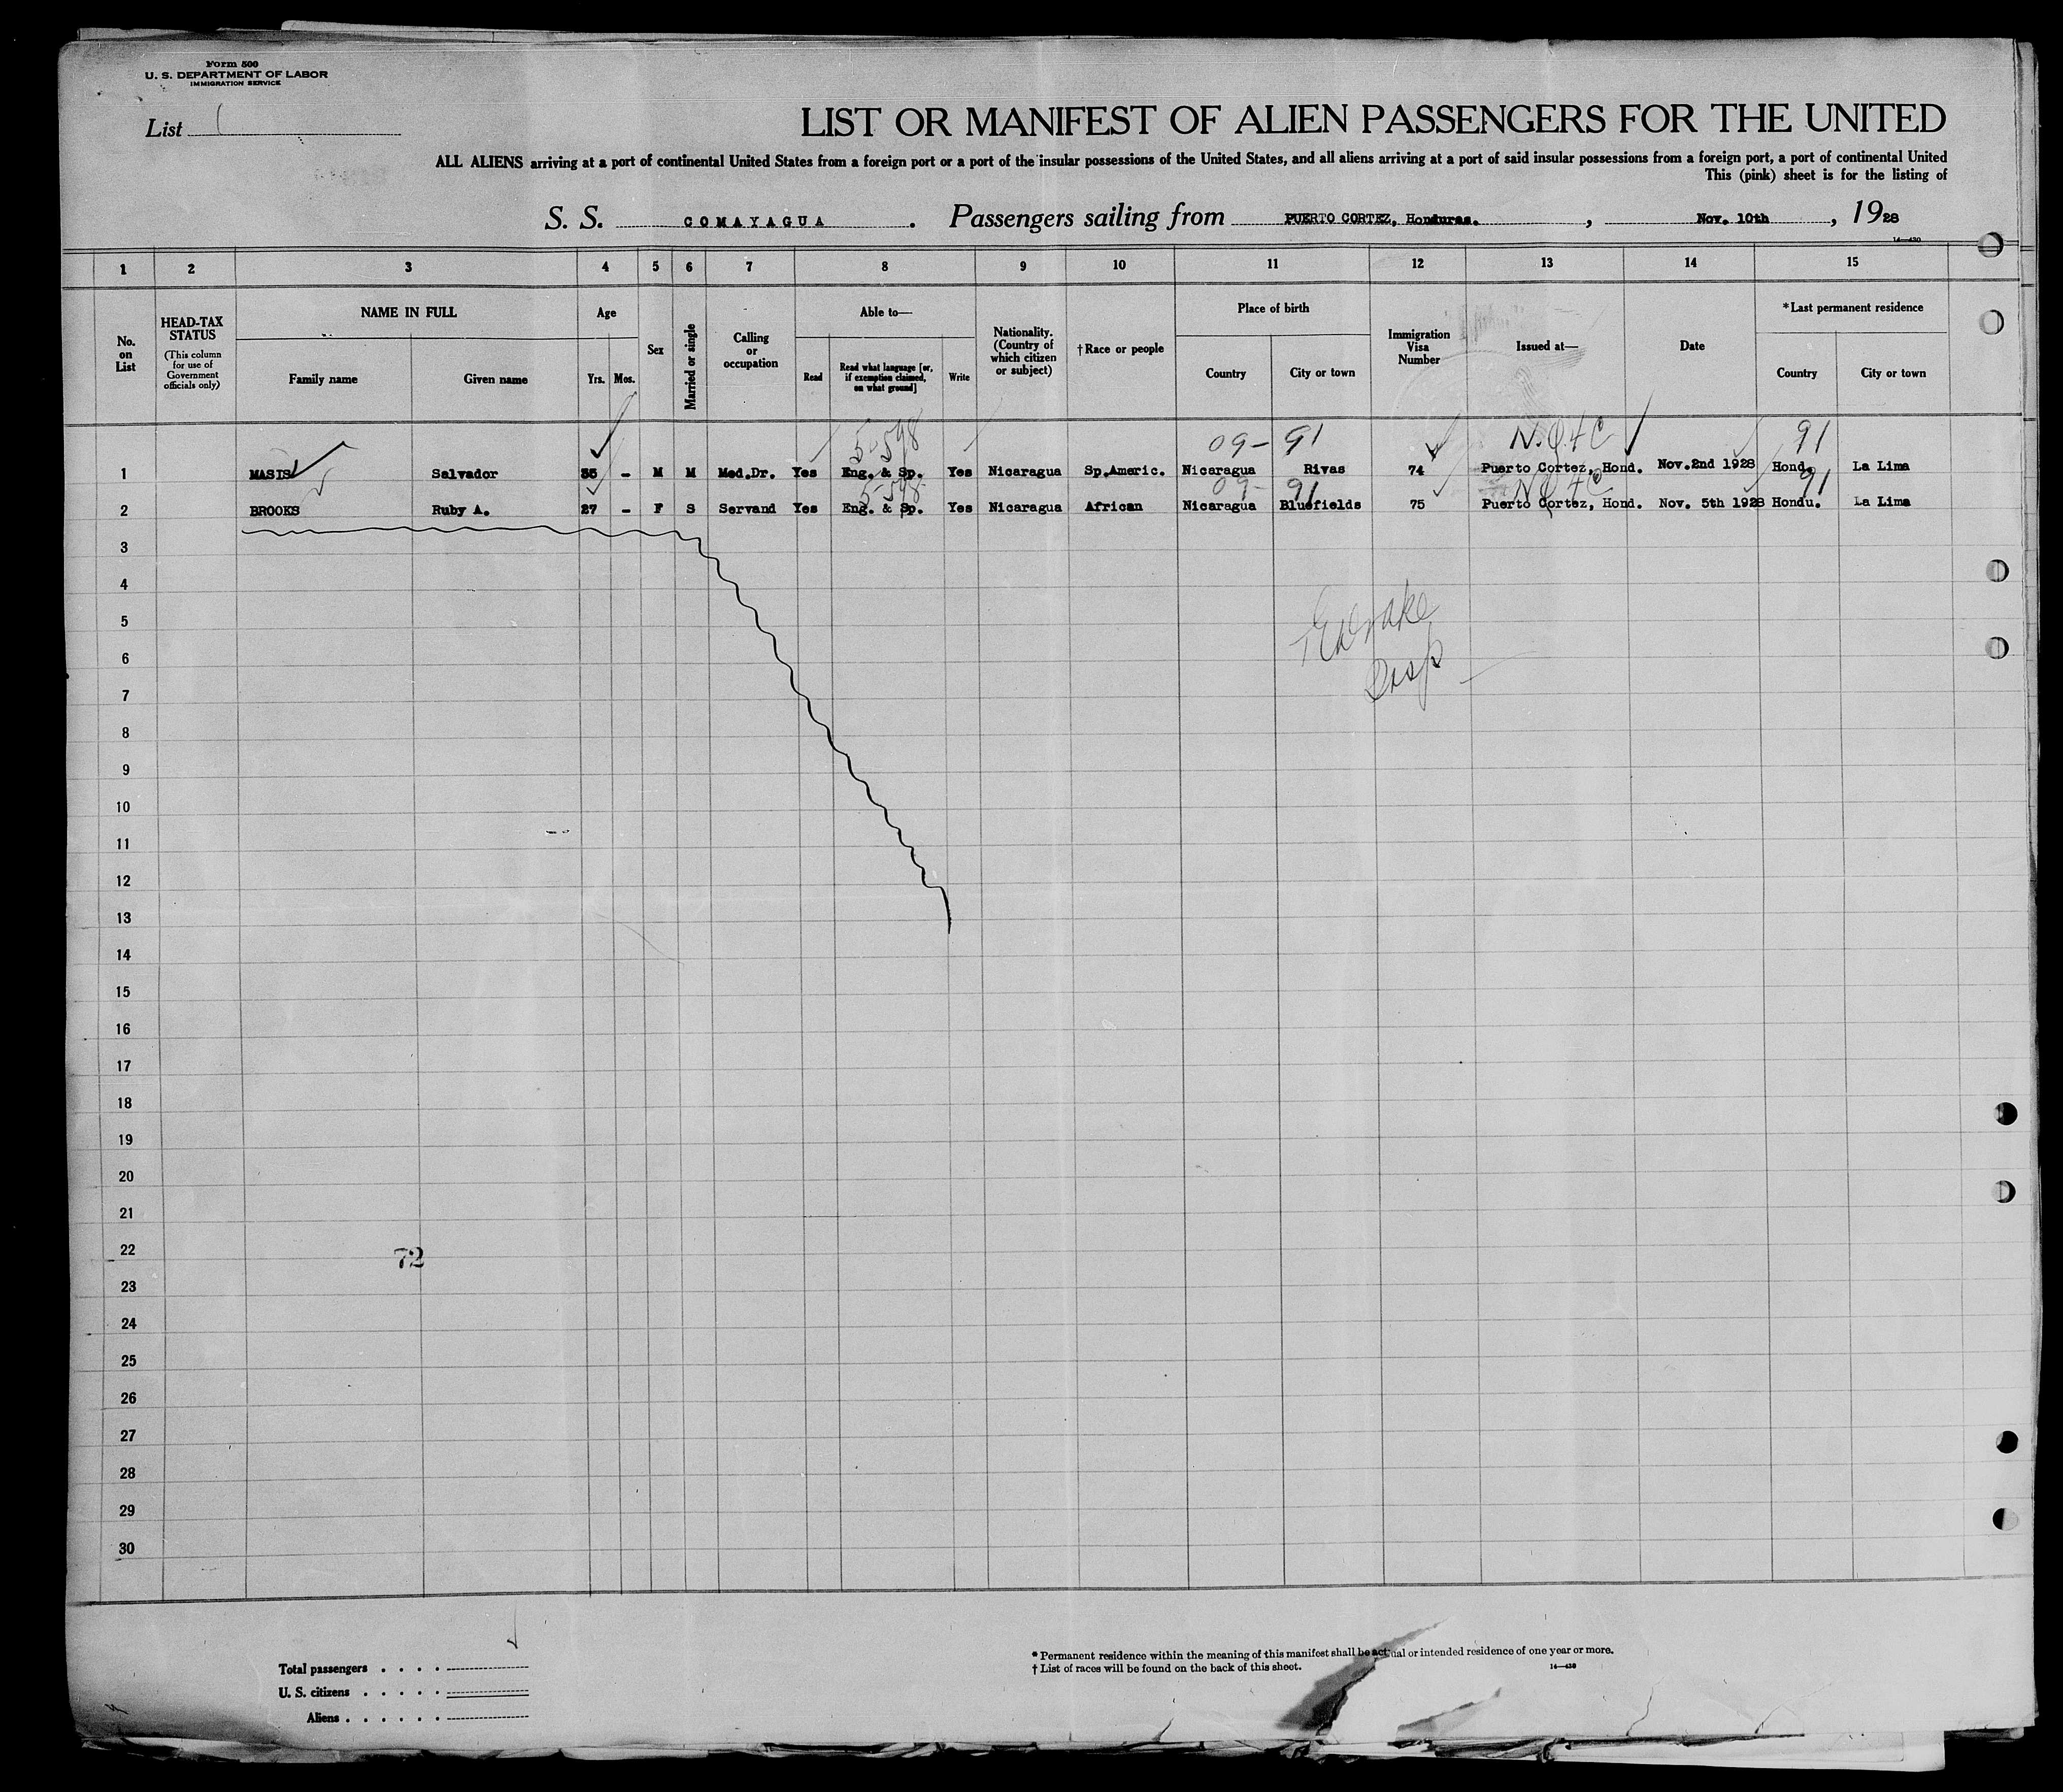 Form 500
U. S. DEPARTMENT OF LABOR
IMMIGRATION SERVICE
List
LIST OR MANIFEST OF ALIEN PASSENGERS FOR THE UNITED
ALL ALIENS arriving at a port of continental United States from a foreign port or a port of the insular possessions of the United States, and all aliens arriving at a port of said insular possessions from a foreign port, a port of continental United
This (pink) sheet is for the listing of
S. S. COMAYAGUA. Passengers sailing from PUERTO CORTEZ, Honduras. , Nov. 10th , 1928
14—430
1 2 3 4 5 6 7 8 9 10 11 12 13 14 15
No. on List
HEAD-TAX STATUS
(This column for use of Government officials only)
NAME IN FULL
Family name Given name
Age
Yrs. Mos.
Sex
Married or single
Calling or occupation
Able to—
Read
Read what language [or, if exemption claimed, on what ground]
Write
Nationality. (Country of which citizen or subject)
†Race or people
Place of birth
Country City or town
Immigration Visa Number
Issued at—
Date
*Last permanent residence
Country City or town
5-598 09- 91 N.O.&C 91
1 MASIS Salvador 35 - M M Med.Dr. Yes Eng. & Sp. Yes Nicaragua Sp.Americ. Nicaragua Rivas 74 Puerto Cortez, Hond. Nov.2nd 1928 Hond. La Lima
5-598 09- 91 91
2 BROOKS Ruby A. 27 - F S Servand Yes Eng. & Sp. Yes Nicaragua African Nicaragua Bluefields 75 Puerto Cortez, Hond. Nov. 5th 1928 Hondu. La Lima
3
4
5
6
7
8
9
10
11
12
13
14
15
16
17
18
19
20
21
22
72
23
24
25
26
27
28
29
30
Total passengers . . . .
U. S. citizens . . . . .
Aliens . . . . . .
* Permanent residence within the meaning of this manifest shall be actual or intended residence of one year or more.
† List of races will be found on the back of this sheet.
14—430